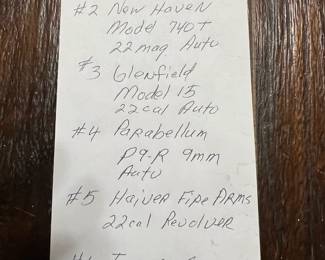 #2 New Haven
Model 740T
22 mag Auto
#3 Glenfield
Model 15
22cal Auto
#4 Parabellum
P9-R 9mm
Auto
#5 Haiver Fire Arms
22cal Revolver